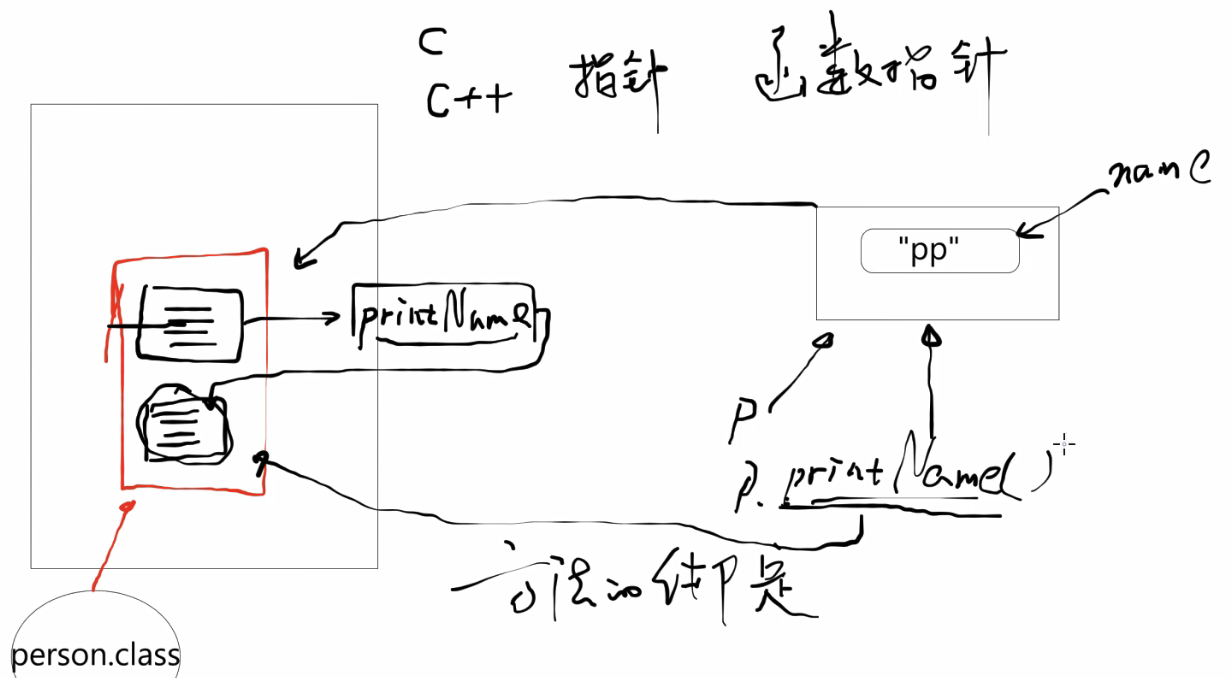 C
C++ 指针 函数指针
name
"pp"
printName
P
P. printName()
方法的
是
person.class